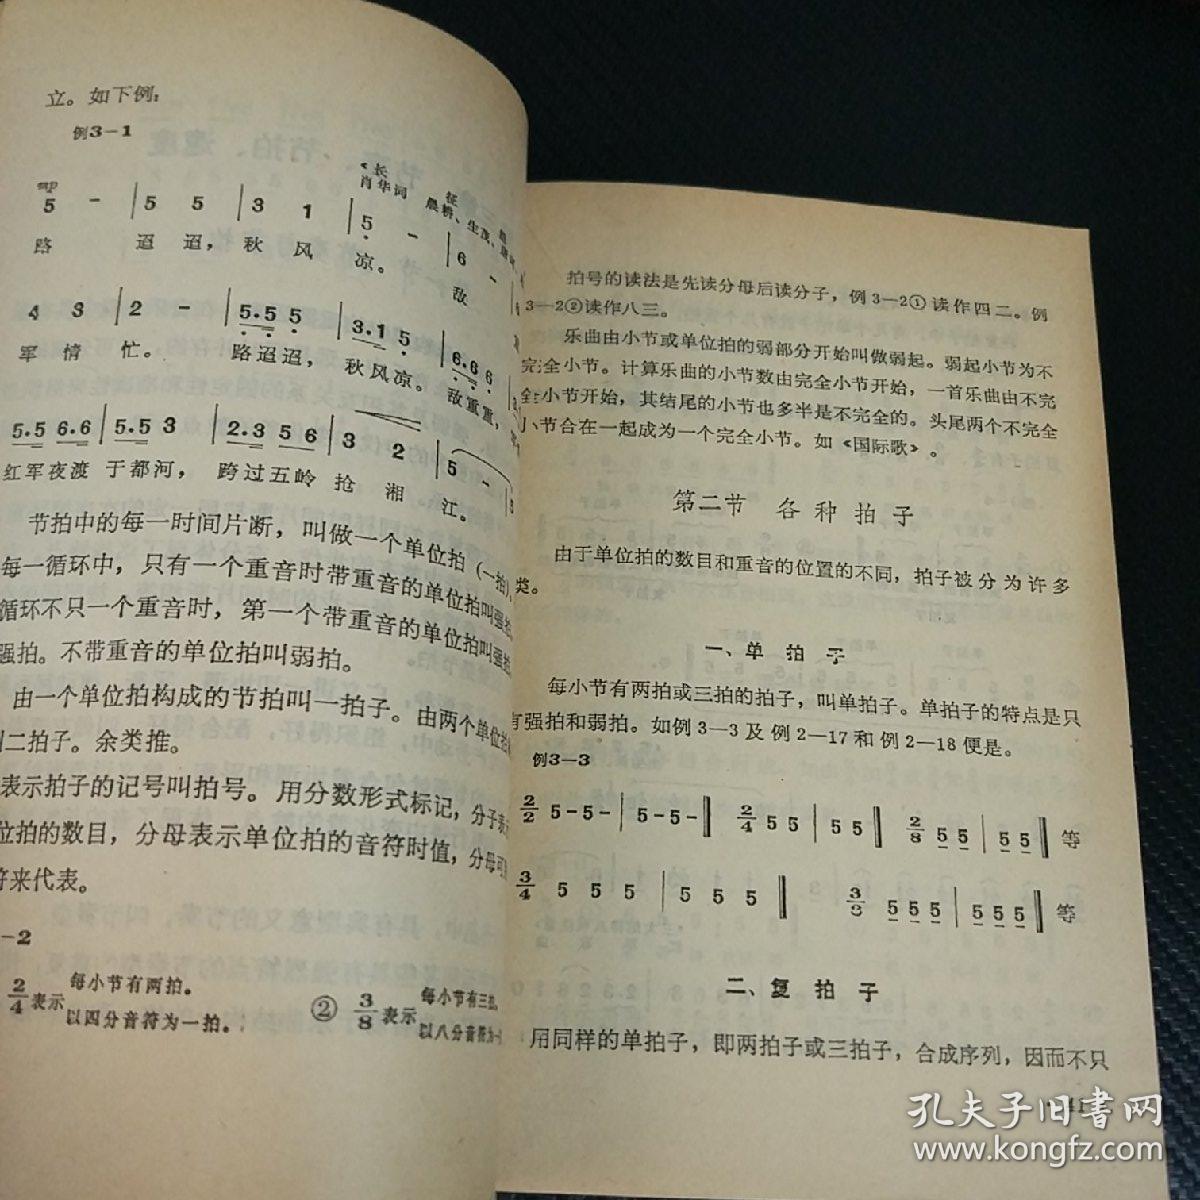 立。如下例：
例3-1
《长 征
肖华词 晨耕、生茂、
mp
5 - | 5 5 | 3 1 | 5 - | 6 -
路 迢迢，秋风 凉。 敌
4 3 | 2 - | 5.5 5 | 3.1 5 | 6.6 6
军情 忙。 路迢迢，秋风凉。敌重重，
5.5 6.6 | 5.5 3 | 2.3 5 6 | 3 2 | 5 - |
红军夜渡 于都河，跨过五岭 抢 湘 江。
节拍中的每一时间片断，叫做一个单位拍（一拍），
每一循环中，只有一个重音时带重音的单位拍叫强拍
循环不只一个重音时，第一个带重音的单位拍叫强拍
强拍。不带重音的单位拍叫弱拍。
由一个单位拍构成的节拍叫一拍子。由两个单位
二拍子。余类推。
表示拍子的记号叫拍号。用分数形式标记，分子表
位拍的数目，分母表示单位拍的音符时值，分母可
符来代表。
-2
2/4 表示 每小节有两拍。
以四分音符为一拍。
② 3/8 表示 每小节有三
以八分音符为
拍号的读法是先读分母后读分子，例3—2①读作四二。例
3—2②读作八三。
乐曲由小节或单位拍的弱部分开始叫做弱起。弱起小节为不
完全小节。计算乐曲的小节数由完全小节开始，一首乐曲由不完
全小节开始，其结尾的小节也多半是不完全的。头尾两个不完全
小节合在一起成为一个完全小节。如《国际歌》。
第二节 各种拍子
由于单位拍的数目和重音的位置的不同，拍子被分为许多
类。
一、单拍子
每小节有两拍或三拍的拍子，叫单拍子。单拍子的特点是只
有强拍和弱拍。如例3—3及例2—17和例2—18便是。
例3—3
2/2 5-5- | 5-5- ‖ 2/4 5 5 | 5 5 ‖ 2/8 5 5 | 5 5 ‖ 等
3/4 5 5 5 | 5 5 5 ‖ 3/8 5 5 5 | 5 5 5 ‖ 等
二、复拍子
用同样的单拍子，即两拍子或三拍子，合成序列，因而不只
41
孔夫子旧书网
www.kongfz.com